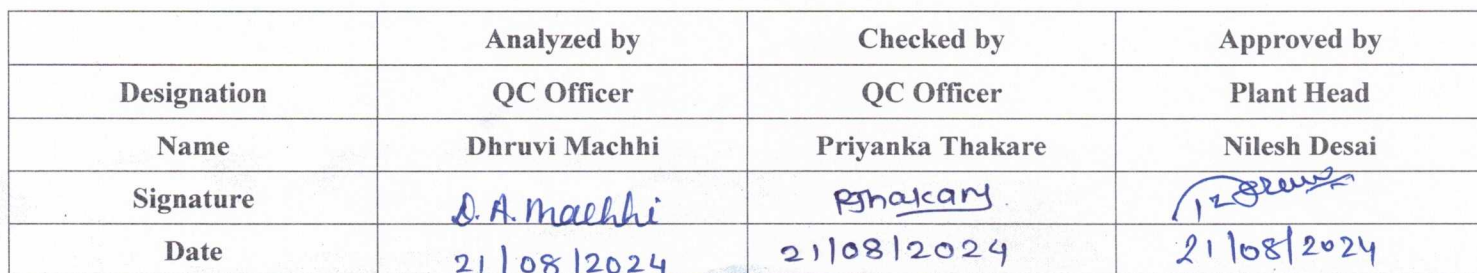 Analyzed by Checked by Approved by
Designation QC Officer QC Officer Plant Head
Name Dhruvi Machhi Priyanka Thakare Nilesh Desai
Signature D. A. Machhi
Date 21/08/2024 21/08/2024 21/08/2024